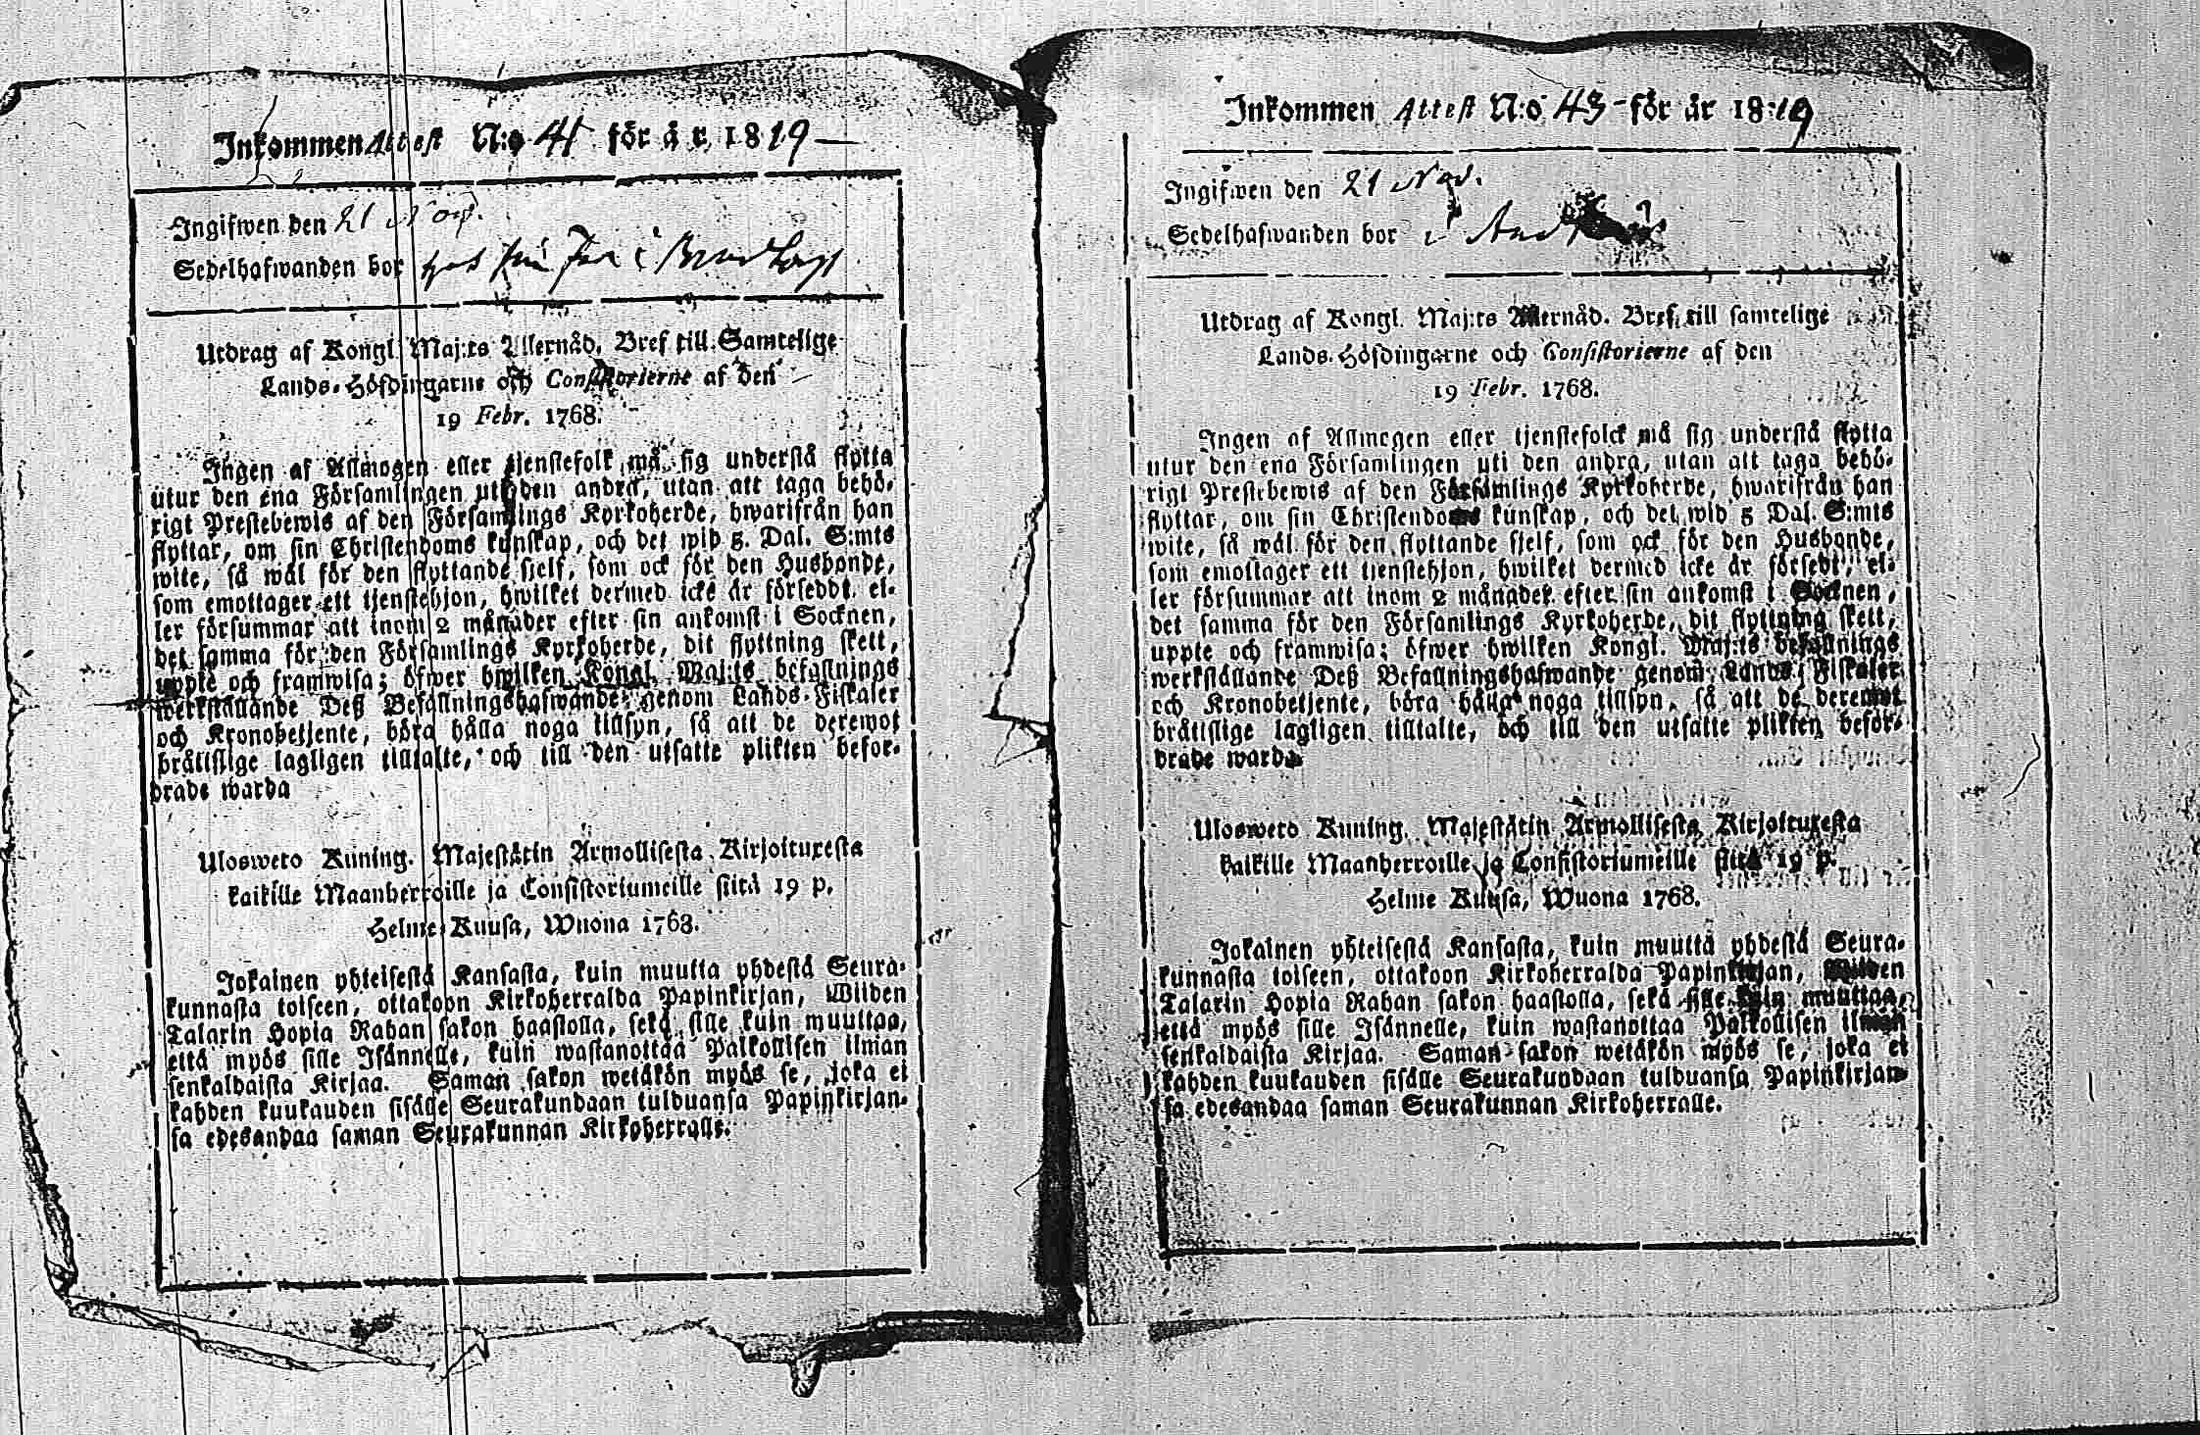 Inkommen Attest N:o 41 för år 1819
Ingifwen den 21 Nov.
Sedelhafwanden bor hos sin i
Utdrag af Kongl. Maj:ts Allernåd. Bref till Samtelige
Lands-Höfdingarne och Consistorierne af den
19 Febr. 1768.
Ingen af Allmogen eller tjenstefolk må sig understå flytta
utur den ena Församlingen uti den andra, utan att taga behö-
rigt Prestebewis af den Församlings Kyrkoherde, hwarifrån han
flyttar, om sin Christendoms kunskap, och det wid 5. Dal. S:mts
wite, så wäl för den flyttande sjelf, som ock för den Husbonde,
som emottager ett tjenstehjon, hwilket dermed icke är förseddt, el-
ler försummar att inom 2 månader efter sin ankomst i Socknen,
det samma för den Församlings Kyrkoherde, dit flyttning skett,
uppte och framwisa; öfwer hwilken Kongl. Maj:ts befallnings
werkställande Deß Befallningshafwande genom Lands-Fiskaler
och Kronobetjente, böra hålla noga tillsyn, så att de deremot
bråttslige lagligen tilltalte, och till den utsatte plikten befor-
drade warda
Ulosweto Kuning. Majestätin Armollisesta Kirjoituxesta
kaikille Maanherroille ja Consistoriumeille siitä 19 p.
Helme Kuusa, Wuona 1768.
Jokainen yhteisestä Kansasta, kuin muutta yhdestä Seura-
kunnasta toiseen, ottakoon Kirkoherralda Papinkirjan, Wiiden
Talarin Hopia Rahan sakon haastolla, sekä sille kuin muuttaa,
että myös sille Isännelle, kuin wastanottaa Palkollisen ilman
senkaldaista Kirjaa. Saman sakon wetäkön myös se, joka ei
kahden kuukauden sisälle Seurakundaan tulduansa Papinkirjan-
sa edesandaa saman Seurakunnan Kirkoherralle.
Inkommen Attest N:o 43 för år 1819
Ingifwen den 21 Nov.
Sedelhafwanden bor i
Utdrag af Kongl. Maj:ts Allernåd. Bref till samtelige
Lands-Höfdingarne och Consistorierne af den
19 Febr. 1768.
Ingen af Allmogen eller tjenstefolck må sig understå flytta
utur den ena Församlingen uti den andra, utan att taga behö-
rigt Prestebewis af den Församlings Kyrkoherde, hwarifrån han
flyttar, om sin Christendoms kunskap, och det wid 5 Dal. S:mts
wite, så wäl för den flyttande sjelf, som ock för den Husbonde,
som emottager ett tjenstehjon, hwilket dermed icke är försedt, el-
ler försummar att inom 2 månader efter sin ankomst i Socknen,
det samma för den Församlings Kyrkoherde, dit flyttning skett,
uppte och framwisa; öfwer hwilken Kongl. Maj:ts befallnings
werkställande Deß Befallningshafwande genom Lands-Fiskaler
och Kronobetjente, böra hålla noga tillsyn, så att de deremot
bråttslige lagligen tilltalte, och till den utsatte plikten befor-
drade warda
Ulosweto Kuning. Majestätin Armollisesta Kirjoituxesta
kaikille Maanherroille ja Consistoriumeille siitä 19 p.
Helme Kuusa, Wuona 1768.
Jokainen yhteisestä Kansasta, kuin muuttä yhdestä Seura-
kunnasta toiseen, ottakoon Kirkoherralda Papinkirjan, Wiiden
Talarin Hopia Rahan sakon haastolla, sekä sille kuin muuttaa,
että myös sille Isännelle, kuin wastanottaa Palkollisen ilman
senkaldaista Kirjaa. Saman sakon wetäkön myös se, joka ei
kahden kuukauden sisälle Seurakundaan tulduansa Papinkirjan-
sa edesandaa saman Seurakunnan Kirkoherralle.